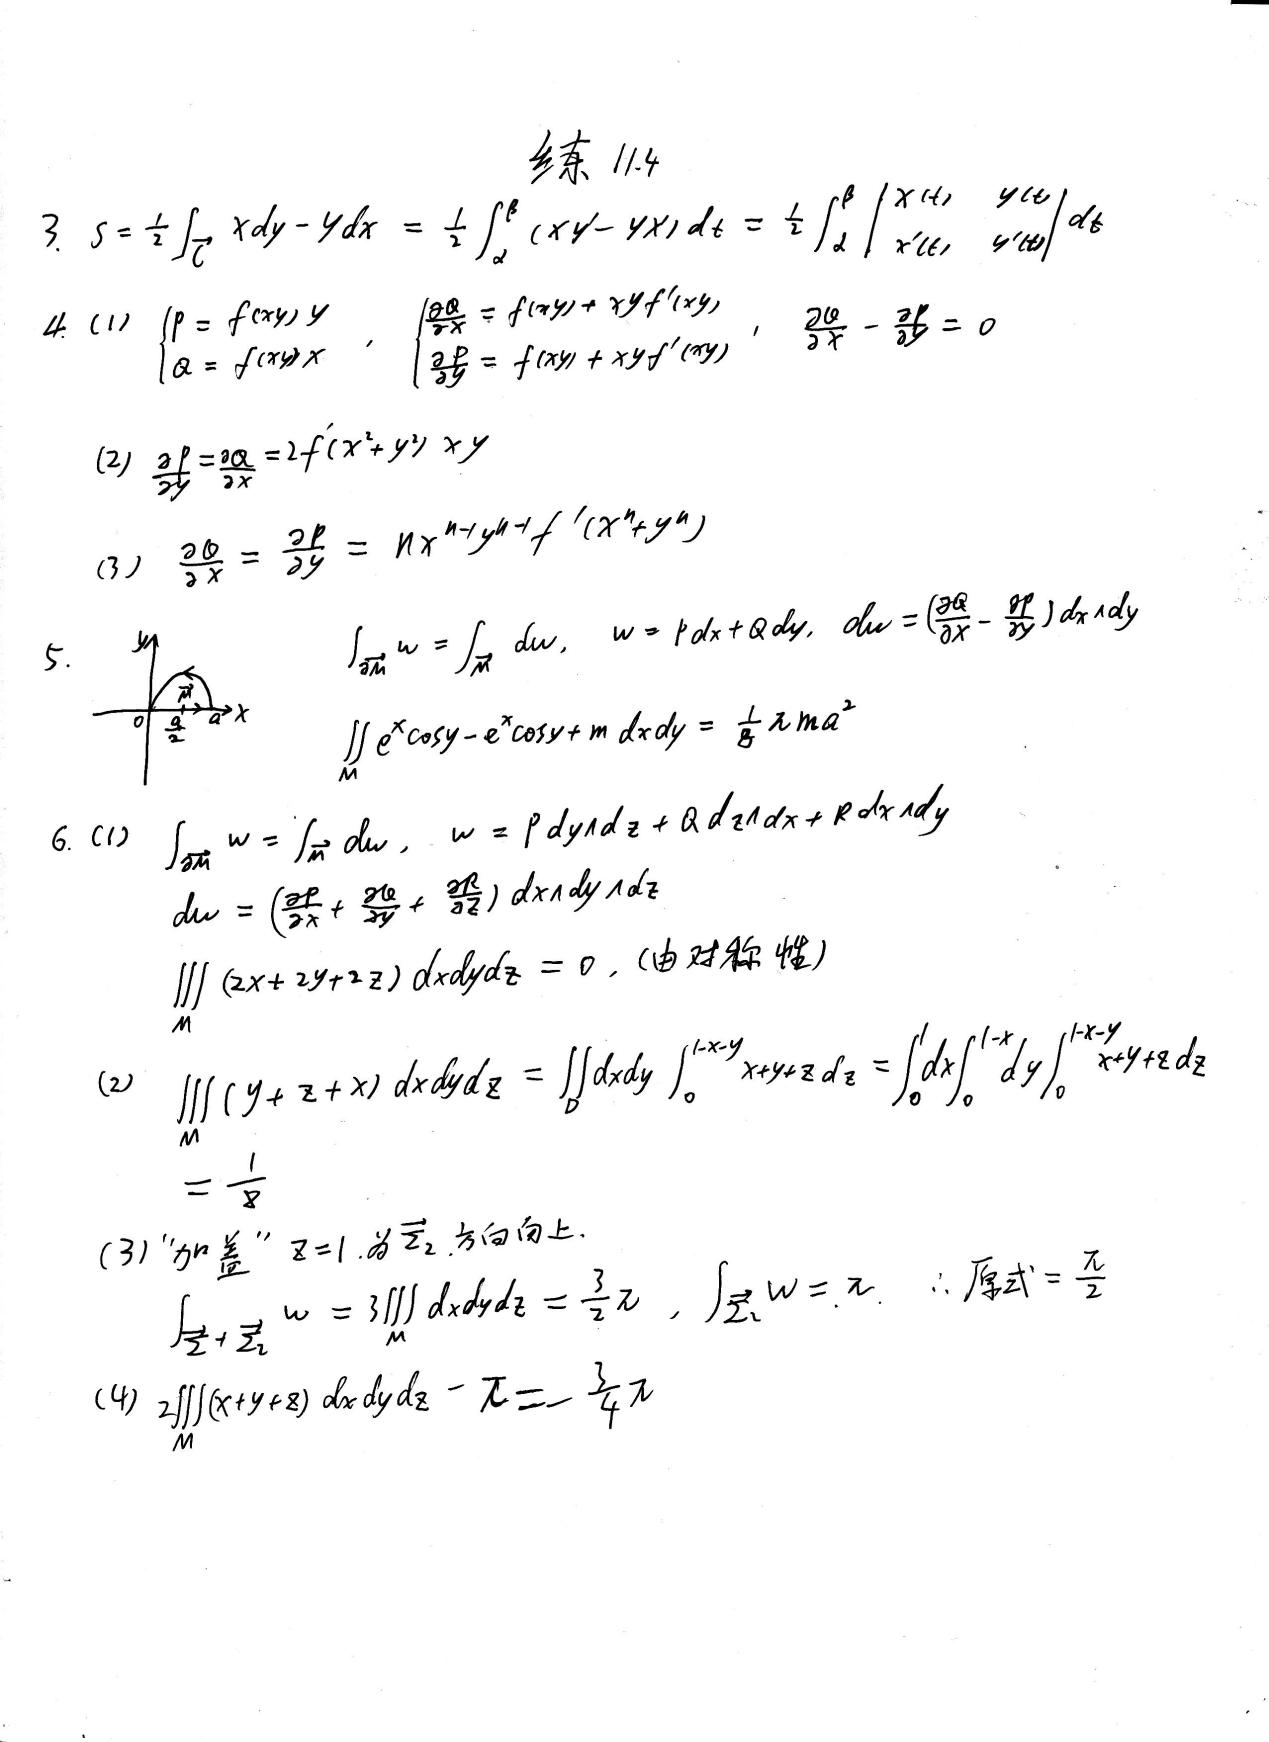 练 11.4
3. S = 1/2 ∫_C⃗ xdy - ydx = 1/2 ∫_α^β (xy' - yx') dt = 1/2 ∫_α^β | x(t) y(t) ; x'(t) y'(t) | dt
4. (1) { P = f(xy) y ; Q = f(xy) x , { ∂Q/∂x = f(xy) + xy f'(xy) ; ∂P/∂y = f(xy) + xy f'(xy) , ∂Q/∂x - ∂P/∂y = 0
(2) ∂P/∂y = ∂Q/∂x = 2f'(x²+y²) xy
(3) ∂Q/∂x = ∂P/∂y = nx^{n-1}y^{n-1} f'(xⁿ+yⁿ)
5. y O a/2 a x M⃗ ∫_∂M⃗ w = ∫_M⃗ dw, w = Pdx + Qdy, dw = (∂Q/∂x - ∂P/∂y) dx∧dy
∬_M e^x cosy - e^x cosy + m dxdy = 1/8 πma²
6. (1) ∫_∂M⃗ w = ∫_M⃗ dw, w = P dy∧dz + Q dz∧dx + R dx∧dy
dw = (∂P/∂x + ∂Q/∂y + ∂R/∂z) dx∧dy∧dz
∭_M (2x+2y+2z) dxdydz = 0, (由对称性)
(2) ∭_M (y+z+x) dxdydz = ∬_D dxdy ∫_0^{1-x-y} x+y+z dz = ∫_0^1 dx ∫_0^{1-x} dy ∫_0^{1-x-y} x+y+z dz
= 1/8
(3) "加盖" z=1. 为 Σ⃗₂ 方向向上.
∫_{Σ⃗+Σ⃗₂} w = 3∭_M dxdydz = 3/2 π, ∫_Σ⃗₂ w = π. ∴ 原式 = π/2
(4) 2∭_M (x+y+z) dxdydz - π = - 3/4 π